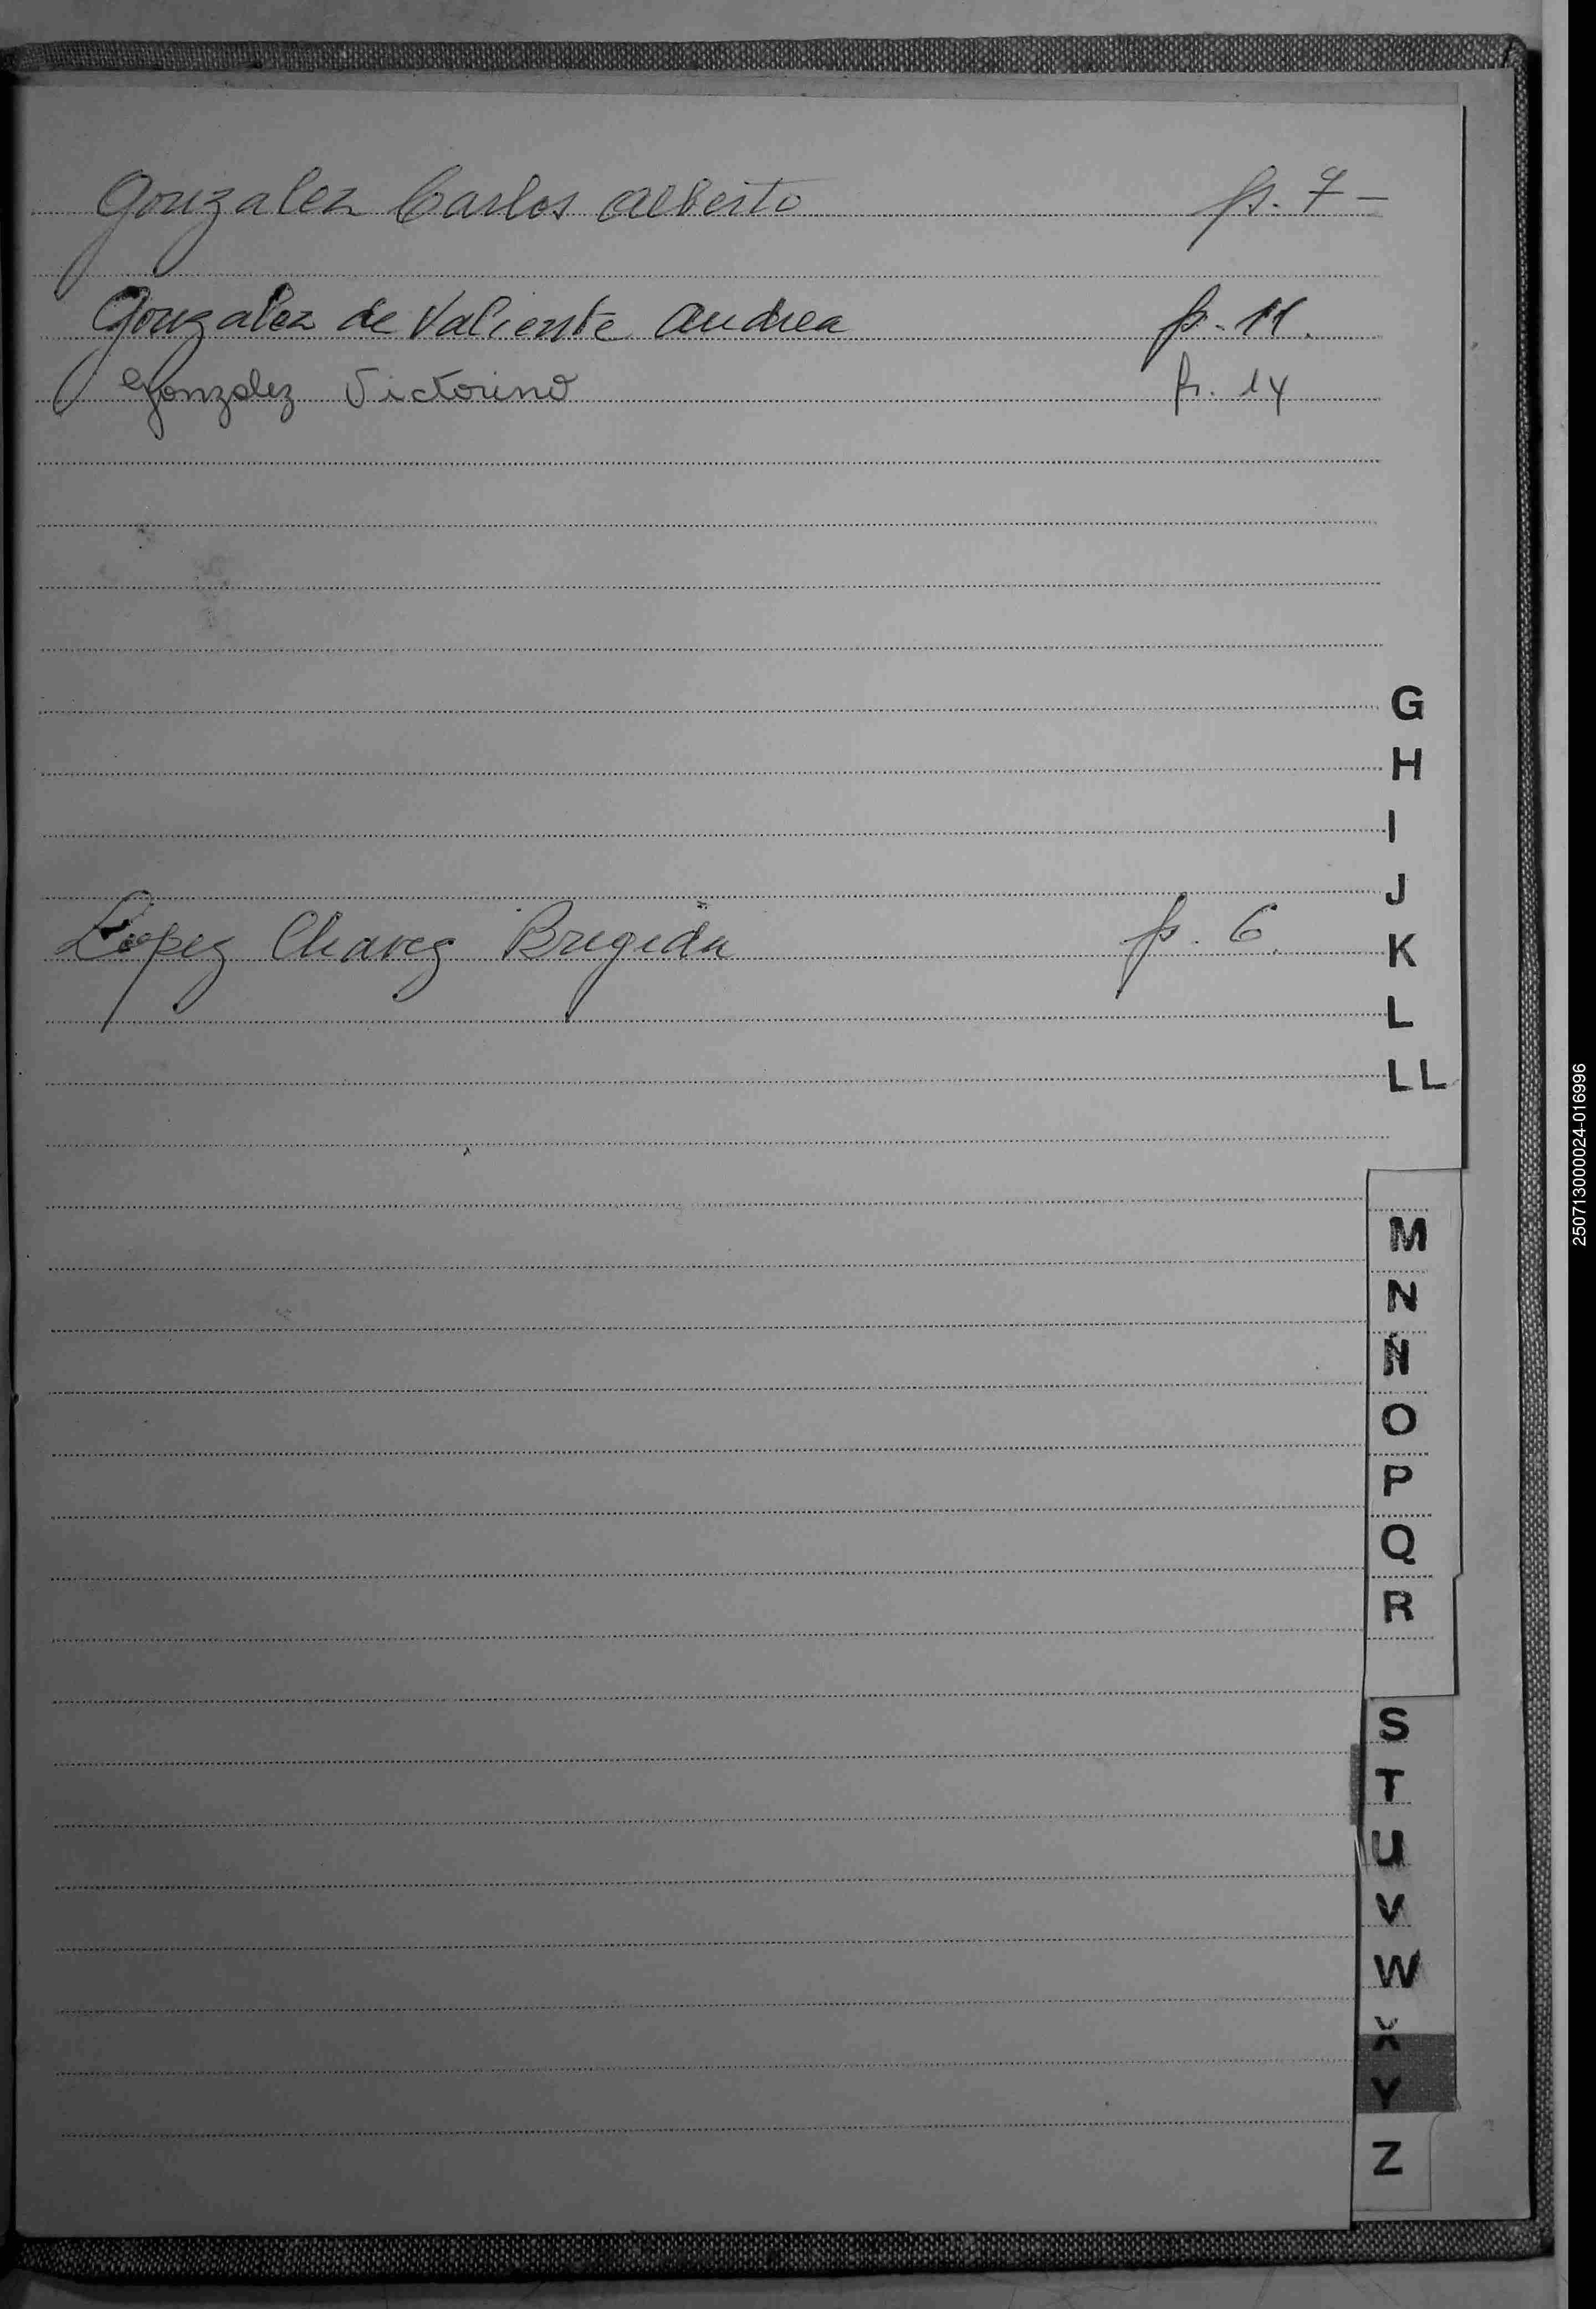 Gonzalez Carlos Alberto p. 7 -
Gonzalez de Valiente Andrea p. 11.
Gonzalez Victorino p. 14
G
H
I
J
Lopez Chavez Brigida p. 6.
K
L
LL
M
N
Ñ
O
P
Q
R
S
T
U
V
W
X
Y
Z
250713000024-016996